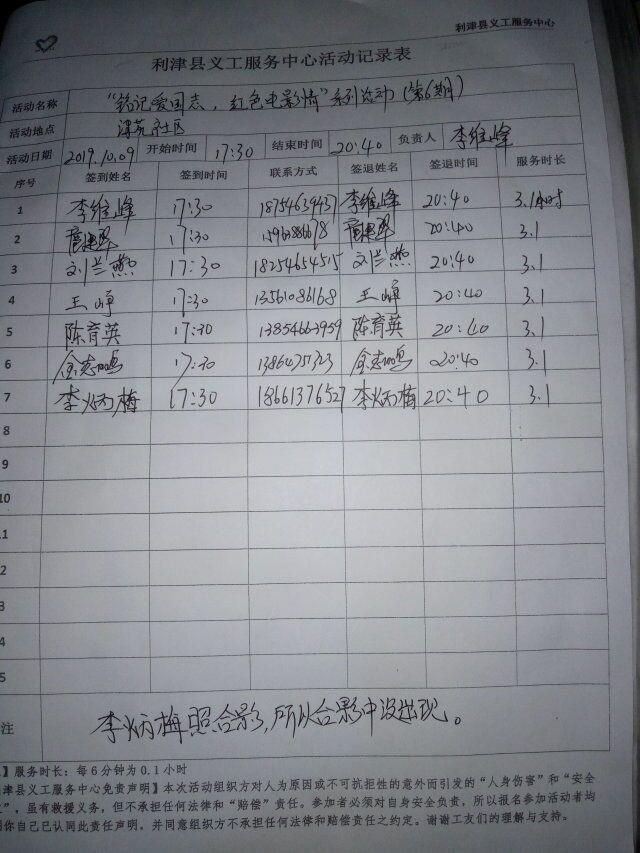 利津县义工服务中心
利津县义工服务中心活动记录表
活动名称 “铭记爱国志，红色电影情”系列活动（第6期）
活动地点 社区
活动日期 2019.10.09 开始时间 17:30 结束时间 20:40 负责人 李维峰
序号 签到姓名 签到时间 联系方式 签退姓名 签退时间 服务时长
1 李维峰 17:30 18754639437 李维峰 20:40 3.1小时
2 17:30 20:40 3.1
3 刘兰燕 17:30 18254654515 刘兰燕 20:40 3.1
4 王峥 17:30 13561086168 王峥 20:40 3.1
5 陈育英 17:30 13854663959 陈育英 20:40 3.1
6 余志鸣 17:30 余志鸣 20:40 3.1
7 李炳梅 17:30 18661376527 李炳梅 20:40 3.1
8
9
10
1
2
3
4
5
注 李炳梅照合影，所以合影中没出现。
】服务时长：每6分钟为0.1小时
津县义工服务中心免责声明】本次活动组织方对人为原因或不可抗拒性的意外而引发的“人身伤害”和“安全
”，虽有救援义务，但不承担任何法律和“赔偿”责任。参加者必须对自身安全负责，所以报名参加活动者均
你自己已认同此责任声明，并同意组织方不承担任何法律和赔偿责任之约定。谢谢工友们的理解与支持。